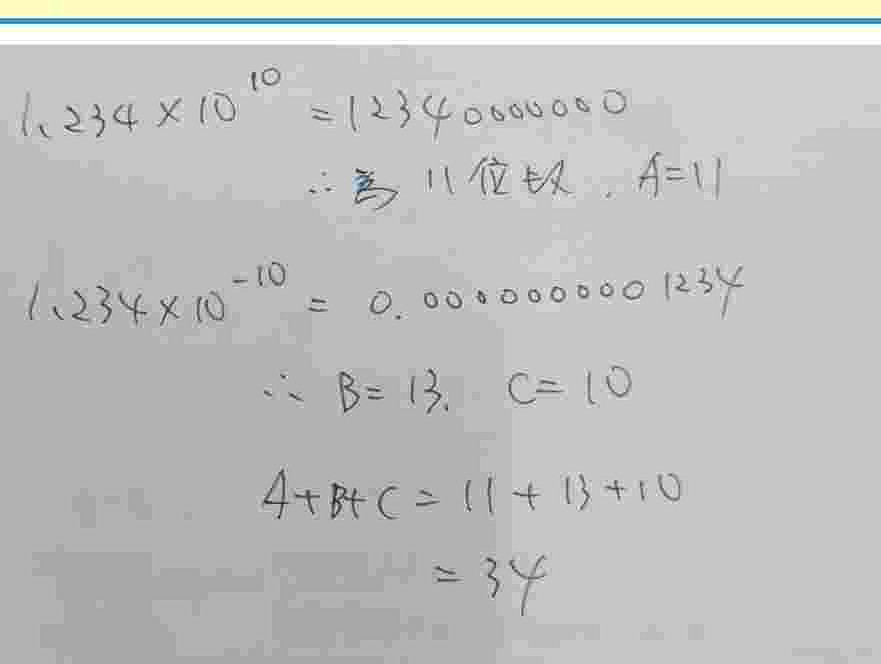 1.234×10^10 = 12340000000
∴為 11 位数. A=11
1.234×10^-10 = 0.0000000001234
∴ B=13. C=10
A+B+C=11+13+10
=34